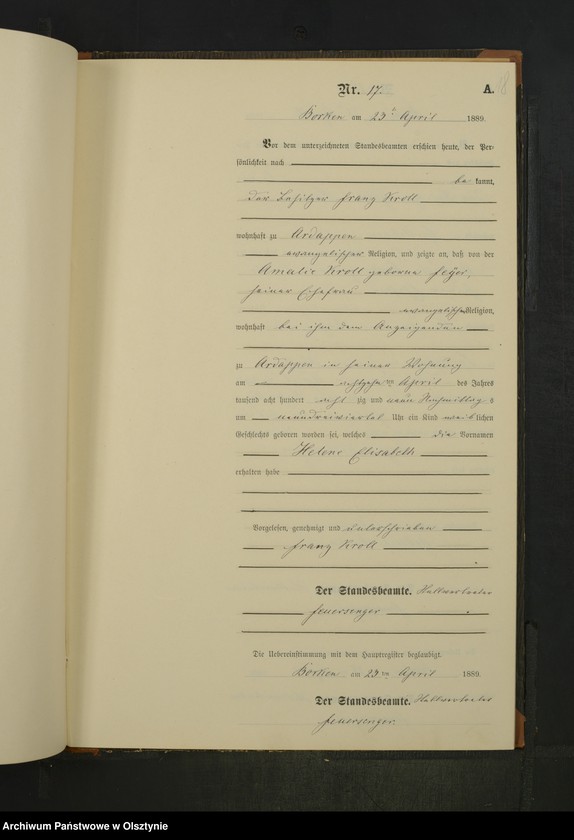 Nr. 17.
A.
Borken am 23ten April 1889.
Vor dem unterzeichneten Standesbeamten erschien heute, der Per-
sönlichkeit nach
be kannt,
der Besitzer Franz Kroll
wohnhaft zu Ardappen
evangelischer Religion, und zeigte an, daß von der
Amalie Kroll geborene
seiner Ehefrau
evangelischer Religion,
wohnhaft bei ihm dem Anzeigenden
zu Ardappen in seiner Wohnung
am achtzehnten April des Jahres
tausend acht hundert acht zig und neun Nachmittags
um neundreiviertel Uhr ein Kind weiblichen
Geschlechts geboren worden sei, welches die Vornamen
Helene Elisabeth
erhalten habe
Vorgelesen, genehmigt und unterschrieben
Franz Kroll
Der Standesbeamte. Stellvertreter
Feuersenger
Die Uebereinstimmung mit dem Hauptregister beglaubigt.
Borken am 23ten April 1889.
Der Standesbeamte. Stellvertreter
Feuersenger.
Archiwum Państwowe w Olsztynie